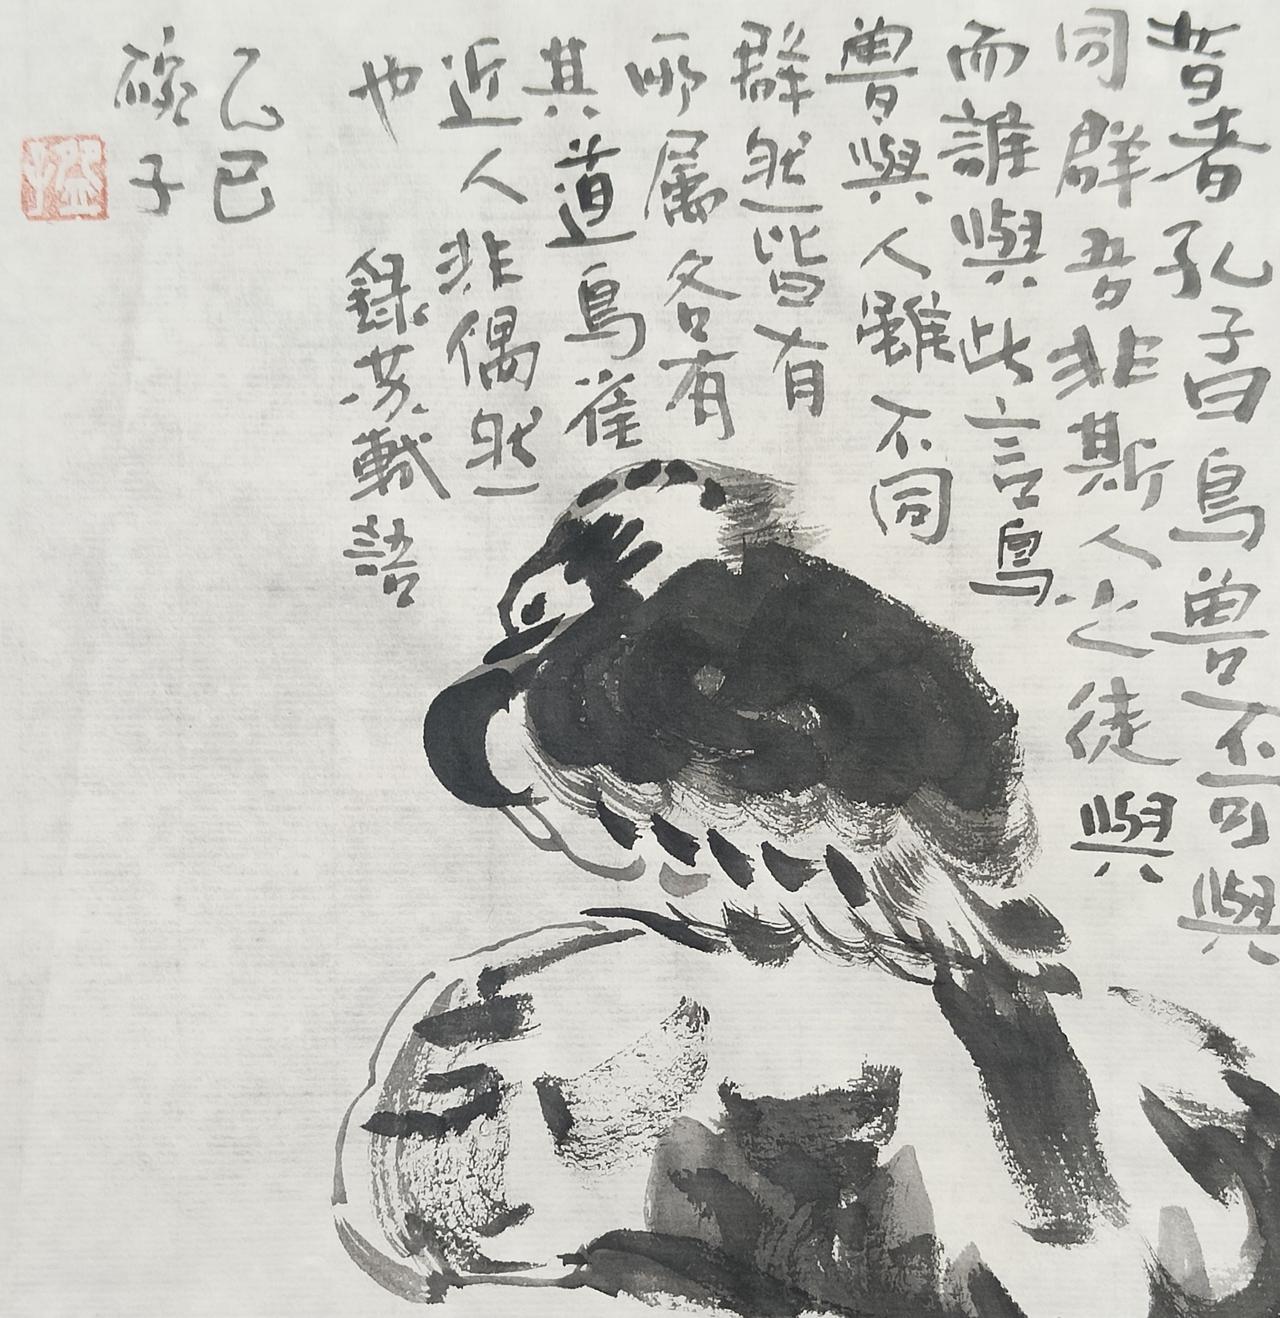 昔者孔子曰鳥獸不可與
同群吾非斯人之徒與
而誰與此言鳥
獸與人雖不同
群然皆有
所屬各有
其道鳥雀
近人非偶然
也 錄苏軾語
乙巳
子